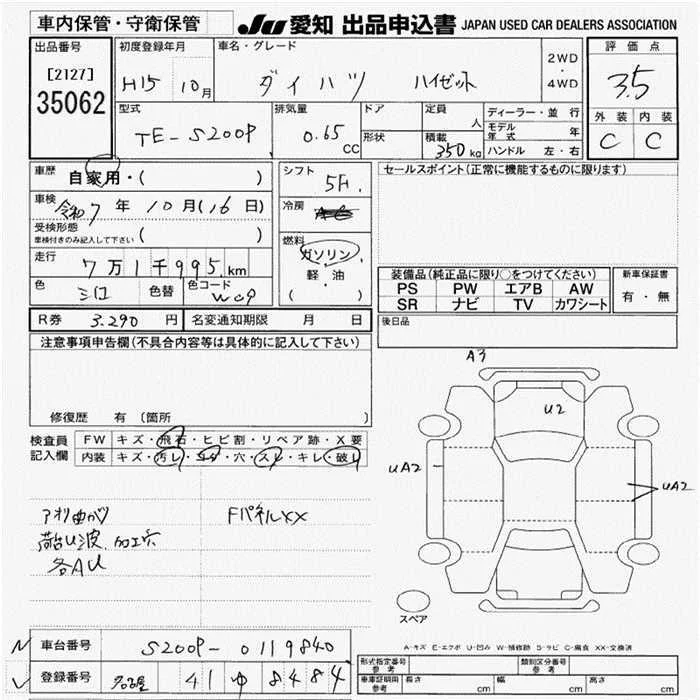 車内保管・守衛保管
JU 愛知 出品申込書 JAPAN USED CAR DEALERS ASSOCIATION
出品番号
[2127]
35062
初度登録年月
H15 10月
車名・グレード
ダイハツ ハイゼット
2WD
・
4WD
評価点
3.5
外装 内装
C C
型式
TE-S200P
排気量
0.65
CC
ドア
形状
定員
人
積載
350kg
ディーラー・並行
モデル年式 年
ハンドル 左・右
車歴
自家用・( )
車検
令和7年10月(16日)
受検形態
車検付きのみ記入して下さい ( )
走行
7万1千995km
色
シロ
色替
色コード
W09
シフト
5F
冷房
燃料
ガソリン
軽・油
( )
セールスポイント(正常に機能するものに限ります)
装備品(純正品に限り○をつけてください)
PS PW エアB AW
SR ナビ TV カワシート
新車保証書
有・無
R券 3.290円 名変通知期限 月 日
後日品
注意事項申告欄(不具合内容等は具体的に記入して下さい)
修復歴 有(箇所 )
検査員
記入欄
FW キズ・飛石・ヒビ割・リペア跡・X要
内装 キズ・汚レ・コゲ・穴・スレ・キレ・破レ
アオリ曲がり FパネルXX
荷台U波、加工穴
各AU
A3
U2
UA2
UA2
スペア
A-キズ E-エクボ U-凹み W-補修跡 S-サビ C-腐食 XX-交換済
車台番号 S200P-0119840
登録番号 名古屋 41 ゆ 8484
形式指定番号
参考
類別区分番号
参考
車庫証明用
参考
長さ cm 幅 cm 高さ cm